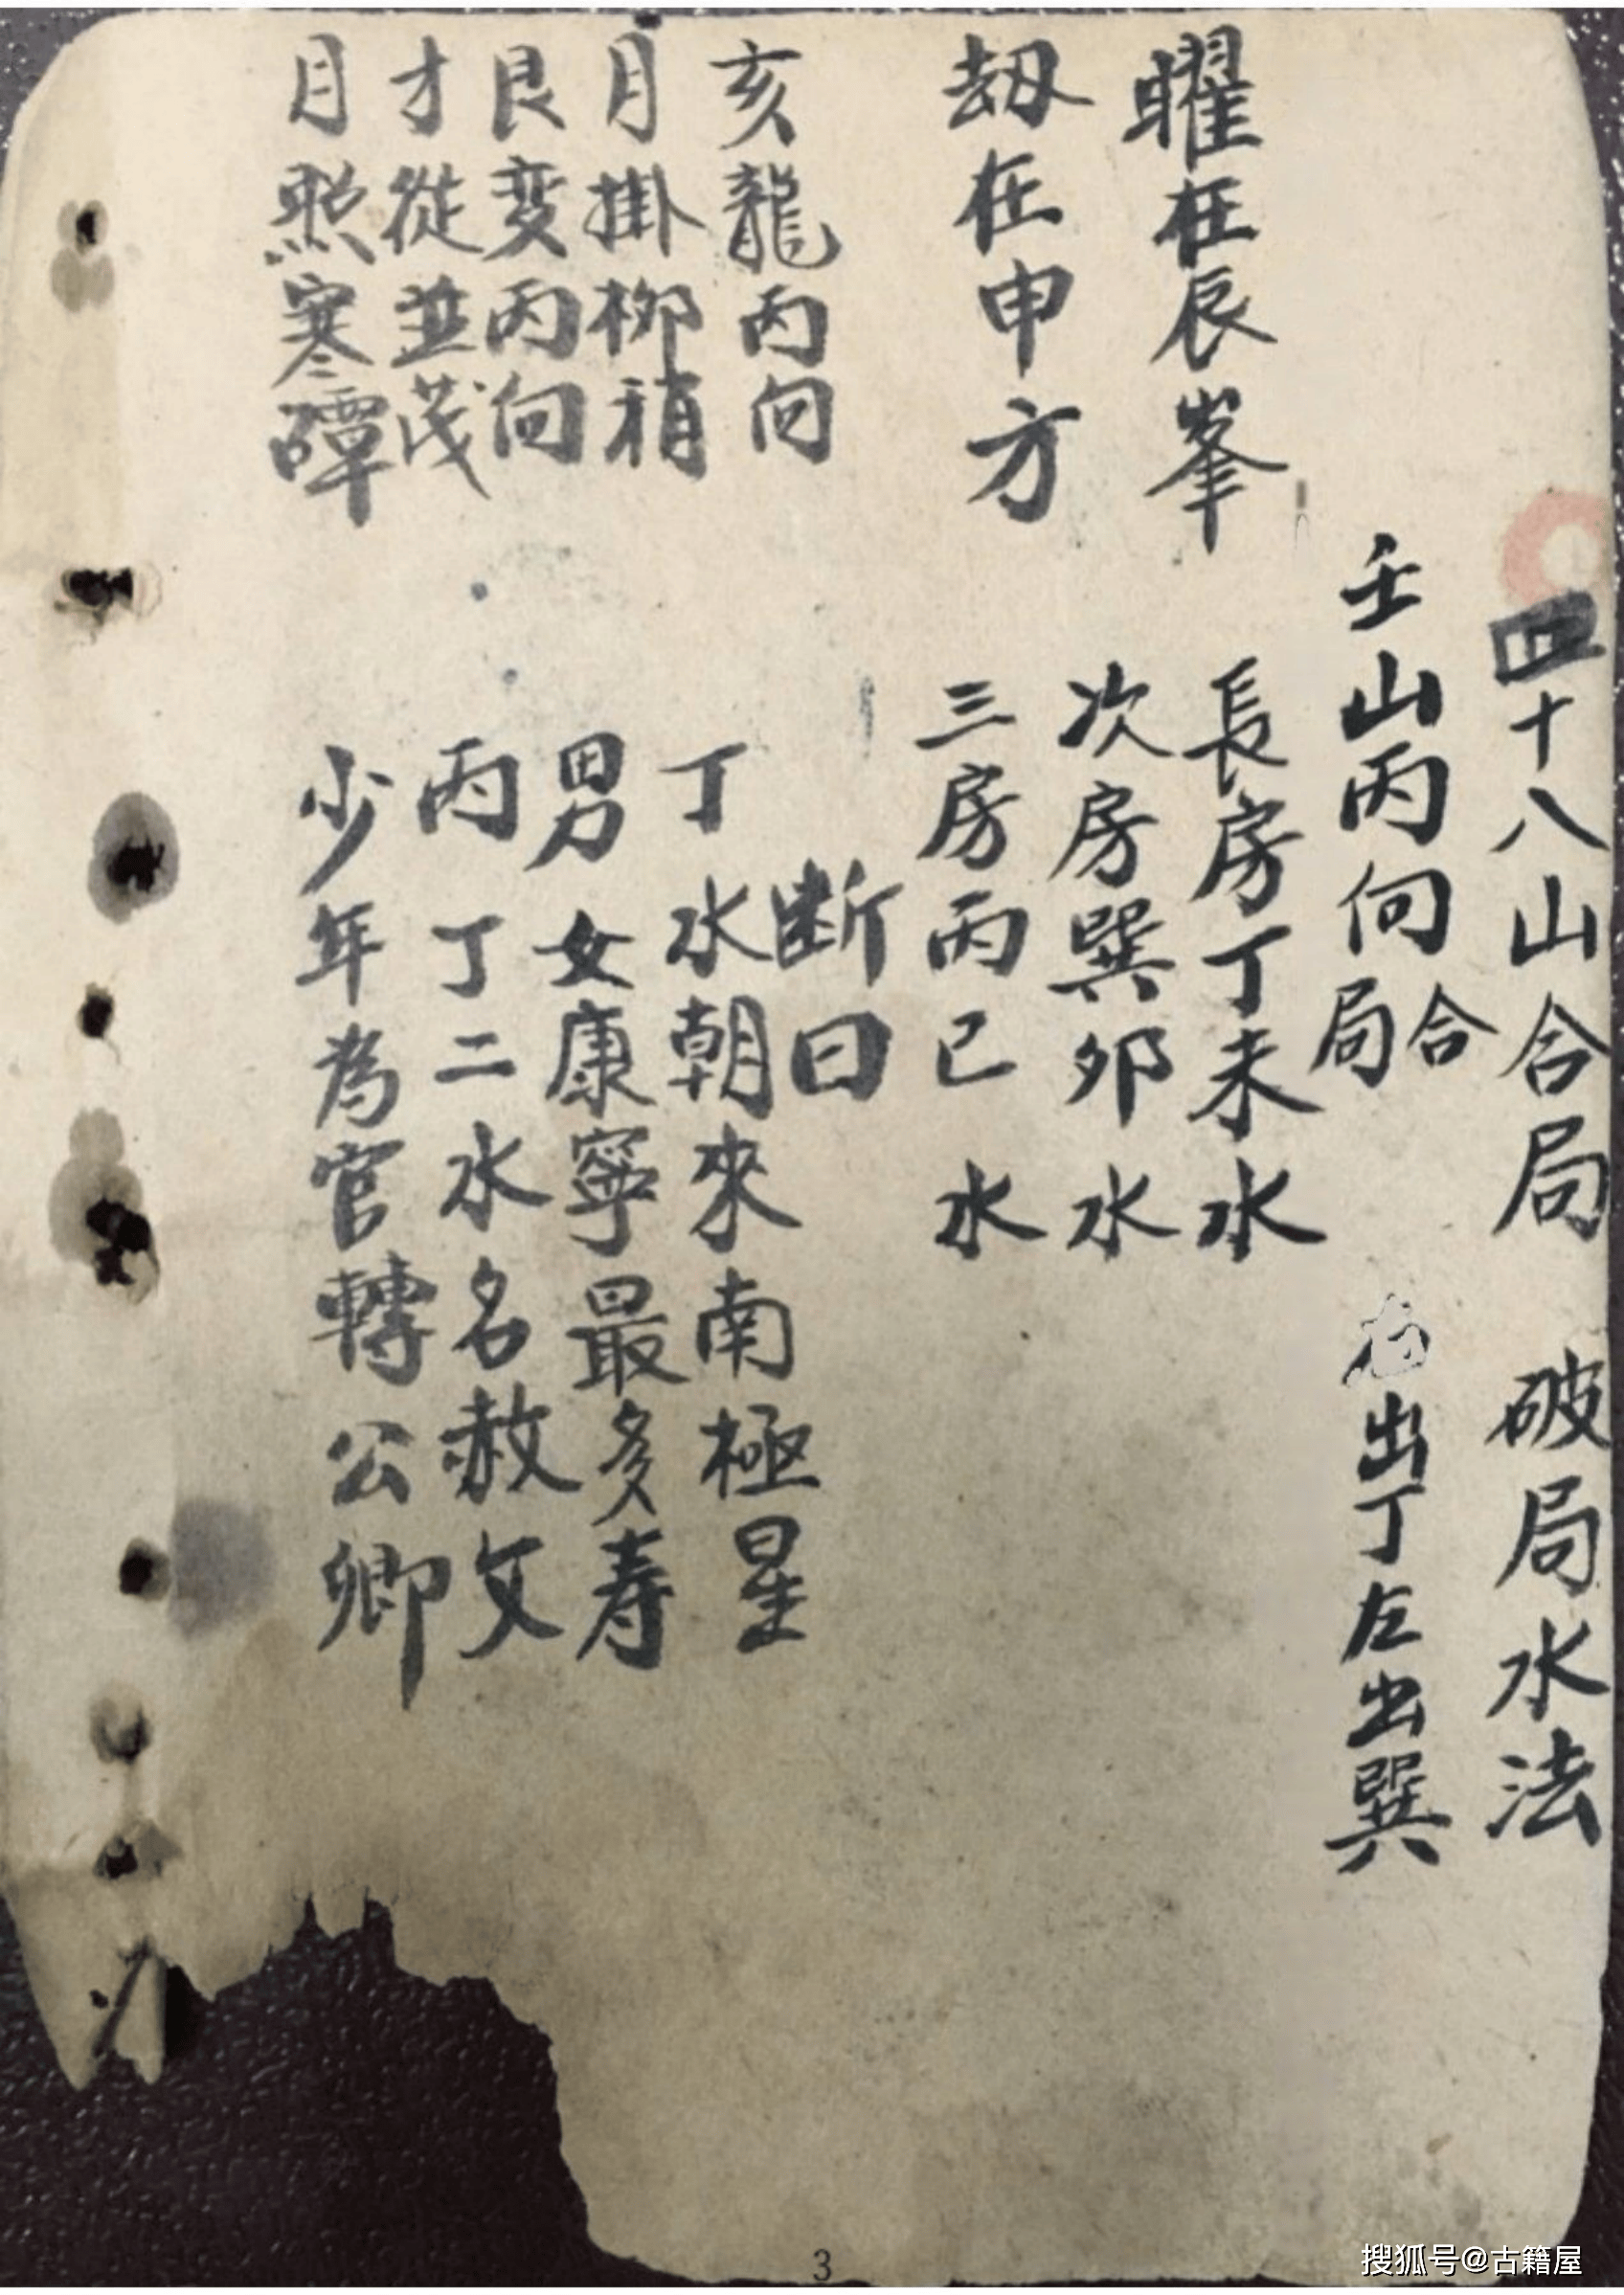 四十八山合局 破局水法
壬山丙向合局 出丁左出巽
曜在辰峯 長房丁未水
次房巽卯水
劫在申方 三房丙巳水
断曰
亥龍丙向 丁水朝來南極星
月掛柳稍 男女康寧最多寿
艮变丙向 丙丁二水名赦文
才從並茂 少年為官轉公卿
月照寒磹
3
搜狐号@古籍屋